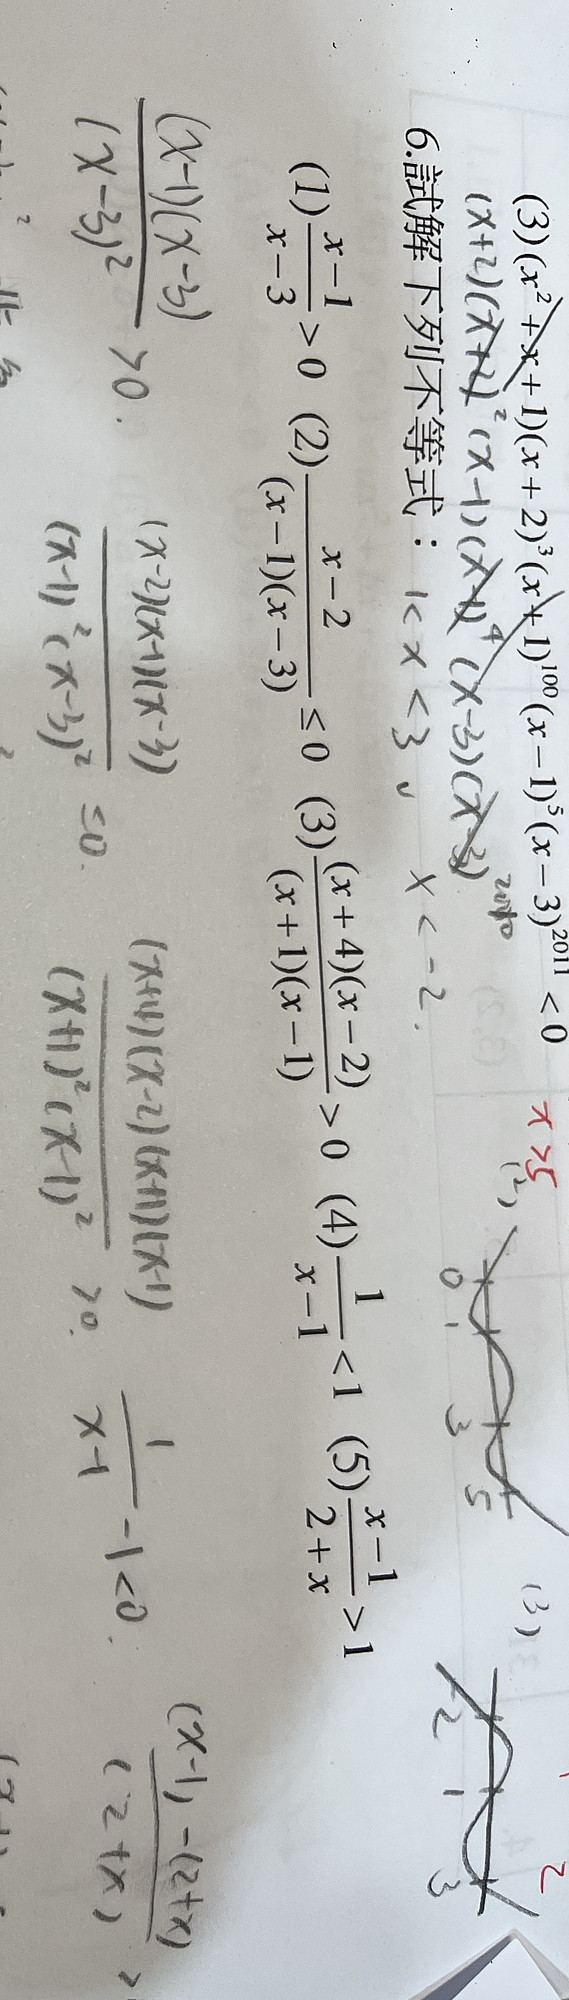 (3)(x²+x+1)(x+2)³(x+1)¹⁰⁰(x−1)⁵(x−3)²⁰¹¹<0
x>5
(x+2)(x+2)²(x-1)(x-1)⁴(x-3)(x-3)²⁰¹⁰
(2)
0 1 3 5
(3)
-2 1 3
2
6.試解下列不等式：
1<x<3, x<-2.
(1) (x−1)/(x−3) > 0 (2) (x−2)/((x−1)(x−3)) ≤ 0 (3) ((x+4)(x−2))/((x+1)(x−1)) > 0 (4) 1/(x−1) < 1 (5) (x−1)/(2+x) > 1
(x-1)(x-3)/(x-3)² >0.
(x-2)(x-1)(x-3)/(x-1)²(x-3)² ≤0.
(x+4)(x-2)(x+1)(x-1)/(x+1)²(x-1)² >0.
1/(x-1) -1<0.
(x-1)-(2+x)/(2+x) >